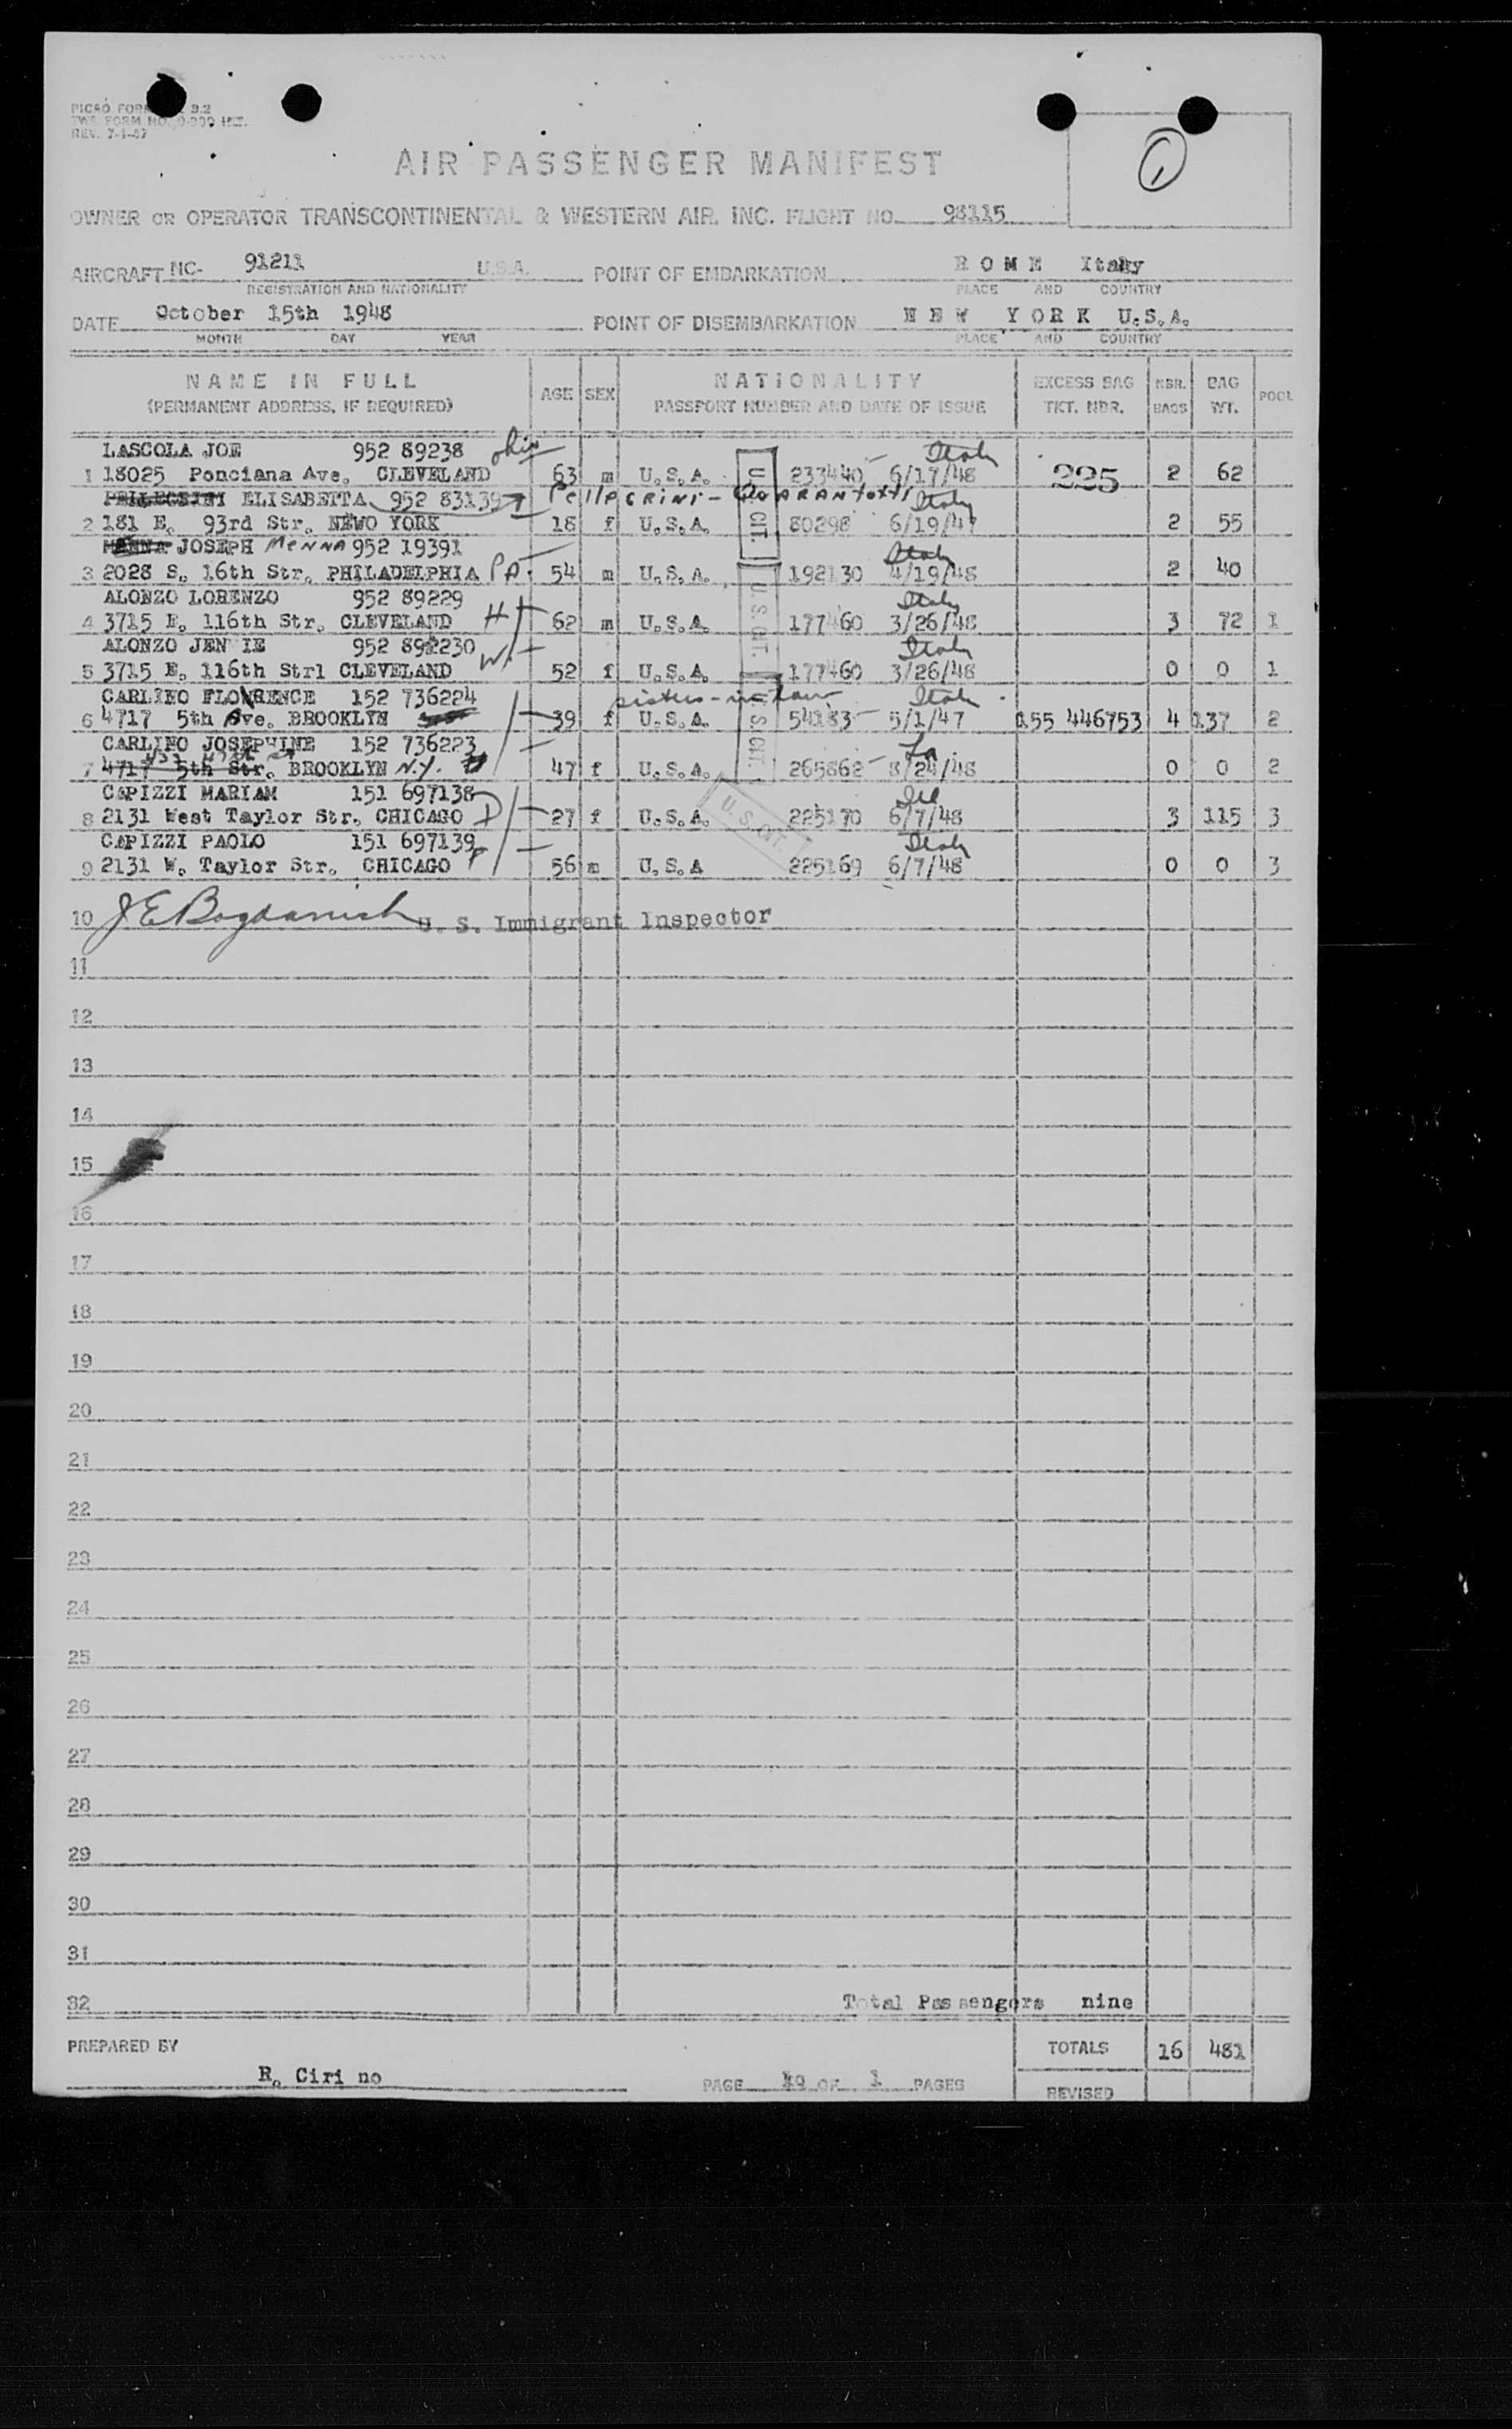 PICAO FORM 9.2
TWA FORM NO. 0-390 INT.
REV. 7-1-47
1
AIR PASSENGER MANIFEST
OWNER OR OPERATOR TRANSCONTINENTAL & WESTERN AIR, INC. FLIGHT NO. 98115
AIRCRAFT NC- 91211 U.S.A. POINT OF EMBARKATION R O M E Italy
REGISTRATION AND NATIONALITY PLACE AND COUNTRY
DATE October 15th 1948 POINT OF DISEMBARKATION N E W Y O R K U.S.A.
MONTH DAY YEAR PLACE AND COUNTRY
NAME IN FULL AGE SEX NATIONALITY EXCESS BAG NBR. BAG POOL
(PERMANENT ADDRESS, IF REQUIRED) PASSPORT NUMBER AND DATE OF ISSUE TKT. NBR. BAGS WT.
LASCOLA JOE 952 89238 Ohio Italy
1 18025 Ponciana Ave. CLEVELAND 63 m U.S.A. 233440 6/17/48 225 2 62
PELLEGRINI ELISABETTA 952 83139 Pellegrini - Quarantotti Italy
2 181 E. 93rd Str. NEWO YORK 18 f U.S.A. 80298 6/19/47 2 55
MANNA JOSEPH Menna 952 19391 Italy
3 2028 S. 16th Str. PHILADELPHIA PA. 54 m U.S.A. 192130 4/19/48 2 40
ALONZO LORENZO 952 89229 Italy
4 3715 E. 116th Str. CLEVELAND H 62 m U.S.A. 177460 3/26/48 3 72 1
ALONZO JEN IE 952 892230 Italy
5 3715 E. 116th Strl CLEVELAND W. 52 f U.S.A. 177460 3/26/48 0 0 1
CARLINO FLORENCE 152 736224 sisters-in-law Italy
6 4717 5th Ave. BROOKLYN 39 f U.S.A. 54183 5/1/47 155 446753 4 137 2
CARLINO JOSEPHINE 152 736223 La.
7 4717 5th Str. BROOKLYN N.Y. 47 f U.S.A. 265862 8/24/48 0 0 2
CAPIZZI MARIAM 151 697138 Ill
8 2131 West Taylor Str. CHICAGO D 27 f U.S.A. 225170 6/7/48 3 115 3
CAPIZZI PAOLO 151 697139 Italy
9 2131 W. Taylor Str. CHICAGO F 56 m U.S.A 225169 6/7/48 0 0 3
U.S. CIT.
U.S. CIT.
U.S. CIT.
U.S. CIT.
10 J E Bogdanish U. S. Immigrant Inspector
11
12
13
14
15
16
17
18
19
20
21
22
23
24
25
26
27
28
29
30
31
32 Total Passengers nine
PREPARED BY TOTALS 16 481
R. Ciri no PAGE OF 1 PAGES REVISED